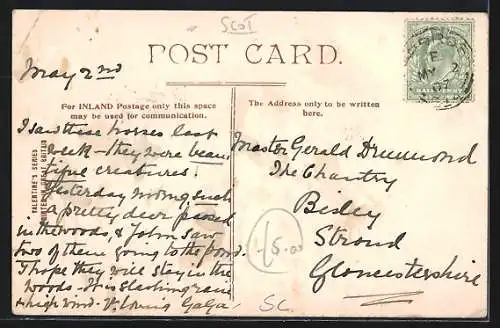 SCOT
POST CARD.
May 2nd
For INLAND Postage only this space
may be used for communication.
The Address only to be written
here.
HALFPENNY
VALENTINE'S SERIES
I saw these horses last
week - they were beau
tiful creatures!
Yesterday moving such
a pretty deer passed
in the woods, & John saw
two of them going to the pond.
I hope they will stay in the
woods - It is slashing rain
& high wind. Yr. Louis GaGa
Master Gerald Drummond
The Chantry
Bisley
Stroud
Gloucestershire
15.00
SC.